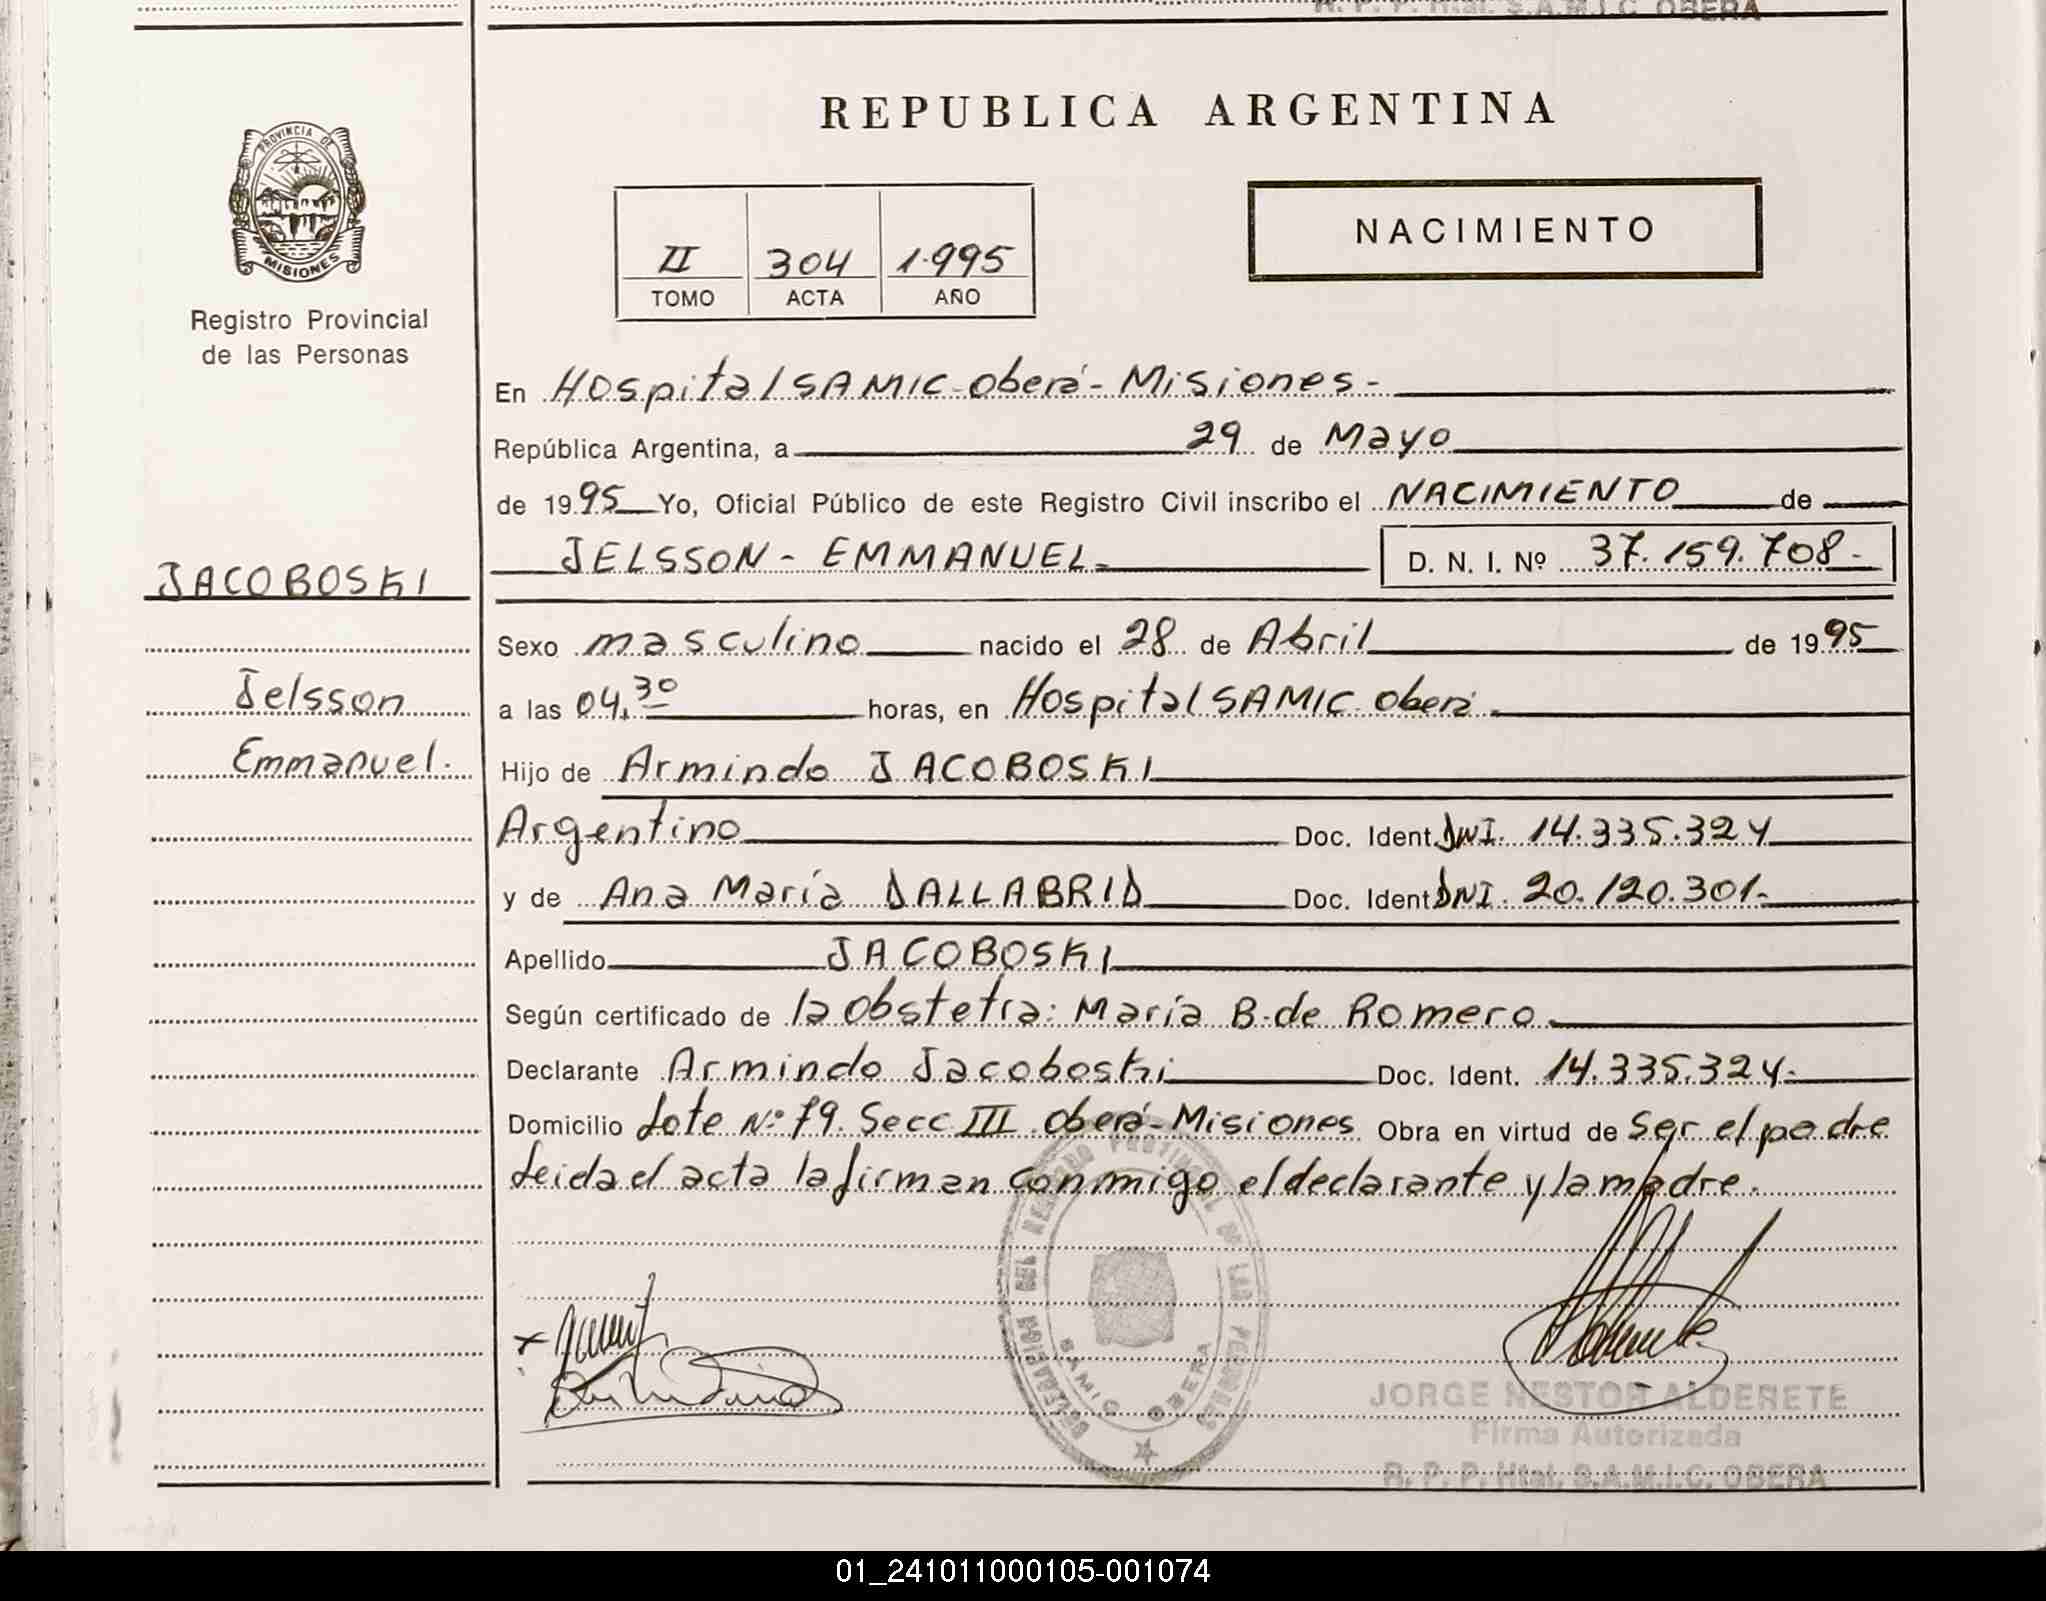 R. P. P. Htal. S.A.M.I.C. OBERA
PROVINCIA DE
MISIONES
Registro Provincial
de las Personas
JACOBOSKI
Jelsson
Emmanuel.
REPUBLICA ARGENTINA
II 304 1.995
TOMO ACTA AÑO
NACIMIENTO
En Hospital SAMIC-Oberá-Misiones-
República Argentina, a 29 de Mayo
de 1995 Yo, Oficial Público de este Registro Civil inscribo el NACIMIENTO de
JELSSON - EMMANUEL- D. N. I. Nº 37.159.708-
Sexo masculino nacido el 28 de Abril de 1995
a las 04,30 horas, en Hospital SAMIC Oberá
Hijo de Armindo JACOBOSKI
Argentino Doc. Ident. DNI. 14.335.324
y de Ana María DALLABRID Doc. Ident DNI. 20.120.301-
Apellido JACOBOSKI
Según certificado de la Obstetra: María B. de Romero
Declarante Armindo Jacoboski Doc. Ident. 14.335.324-
Domicilio Lote Nº 79. Secc III Oberá-Misiones Obra en virtud de ser el padre
Leida el acta la firman conmigo el declarante y la madre.
DELEGACION DEL REGISTRO PROVINCIAL DE LAS PERSONAS
SAMIC OBERA
JORGE NESTOR ALDERETE
Firma Autorizada
R. P. P. Htal. S.A.M.I.C. OBERA
01_241011000105-001074